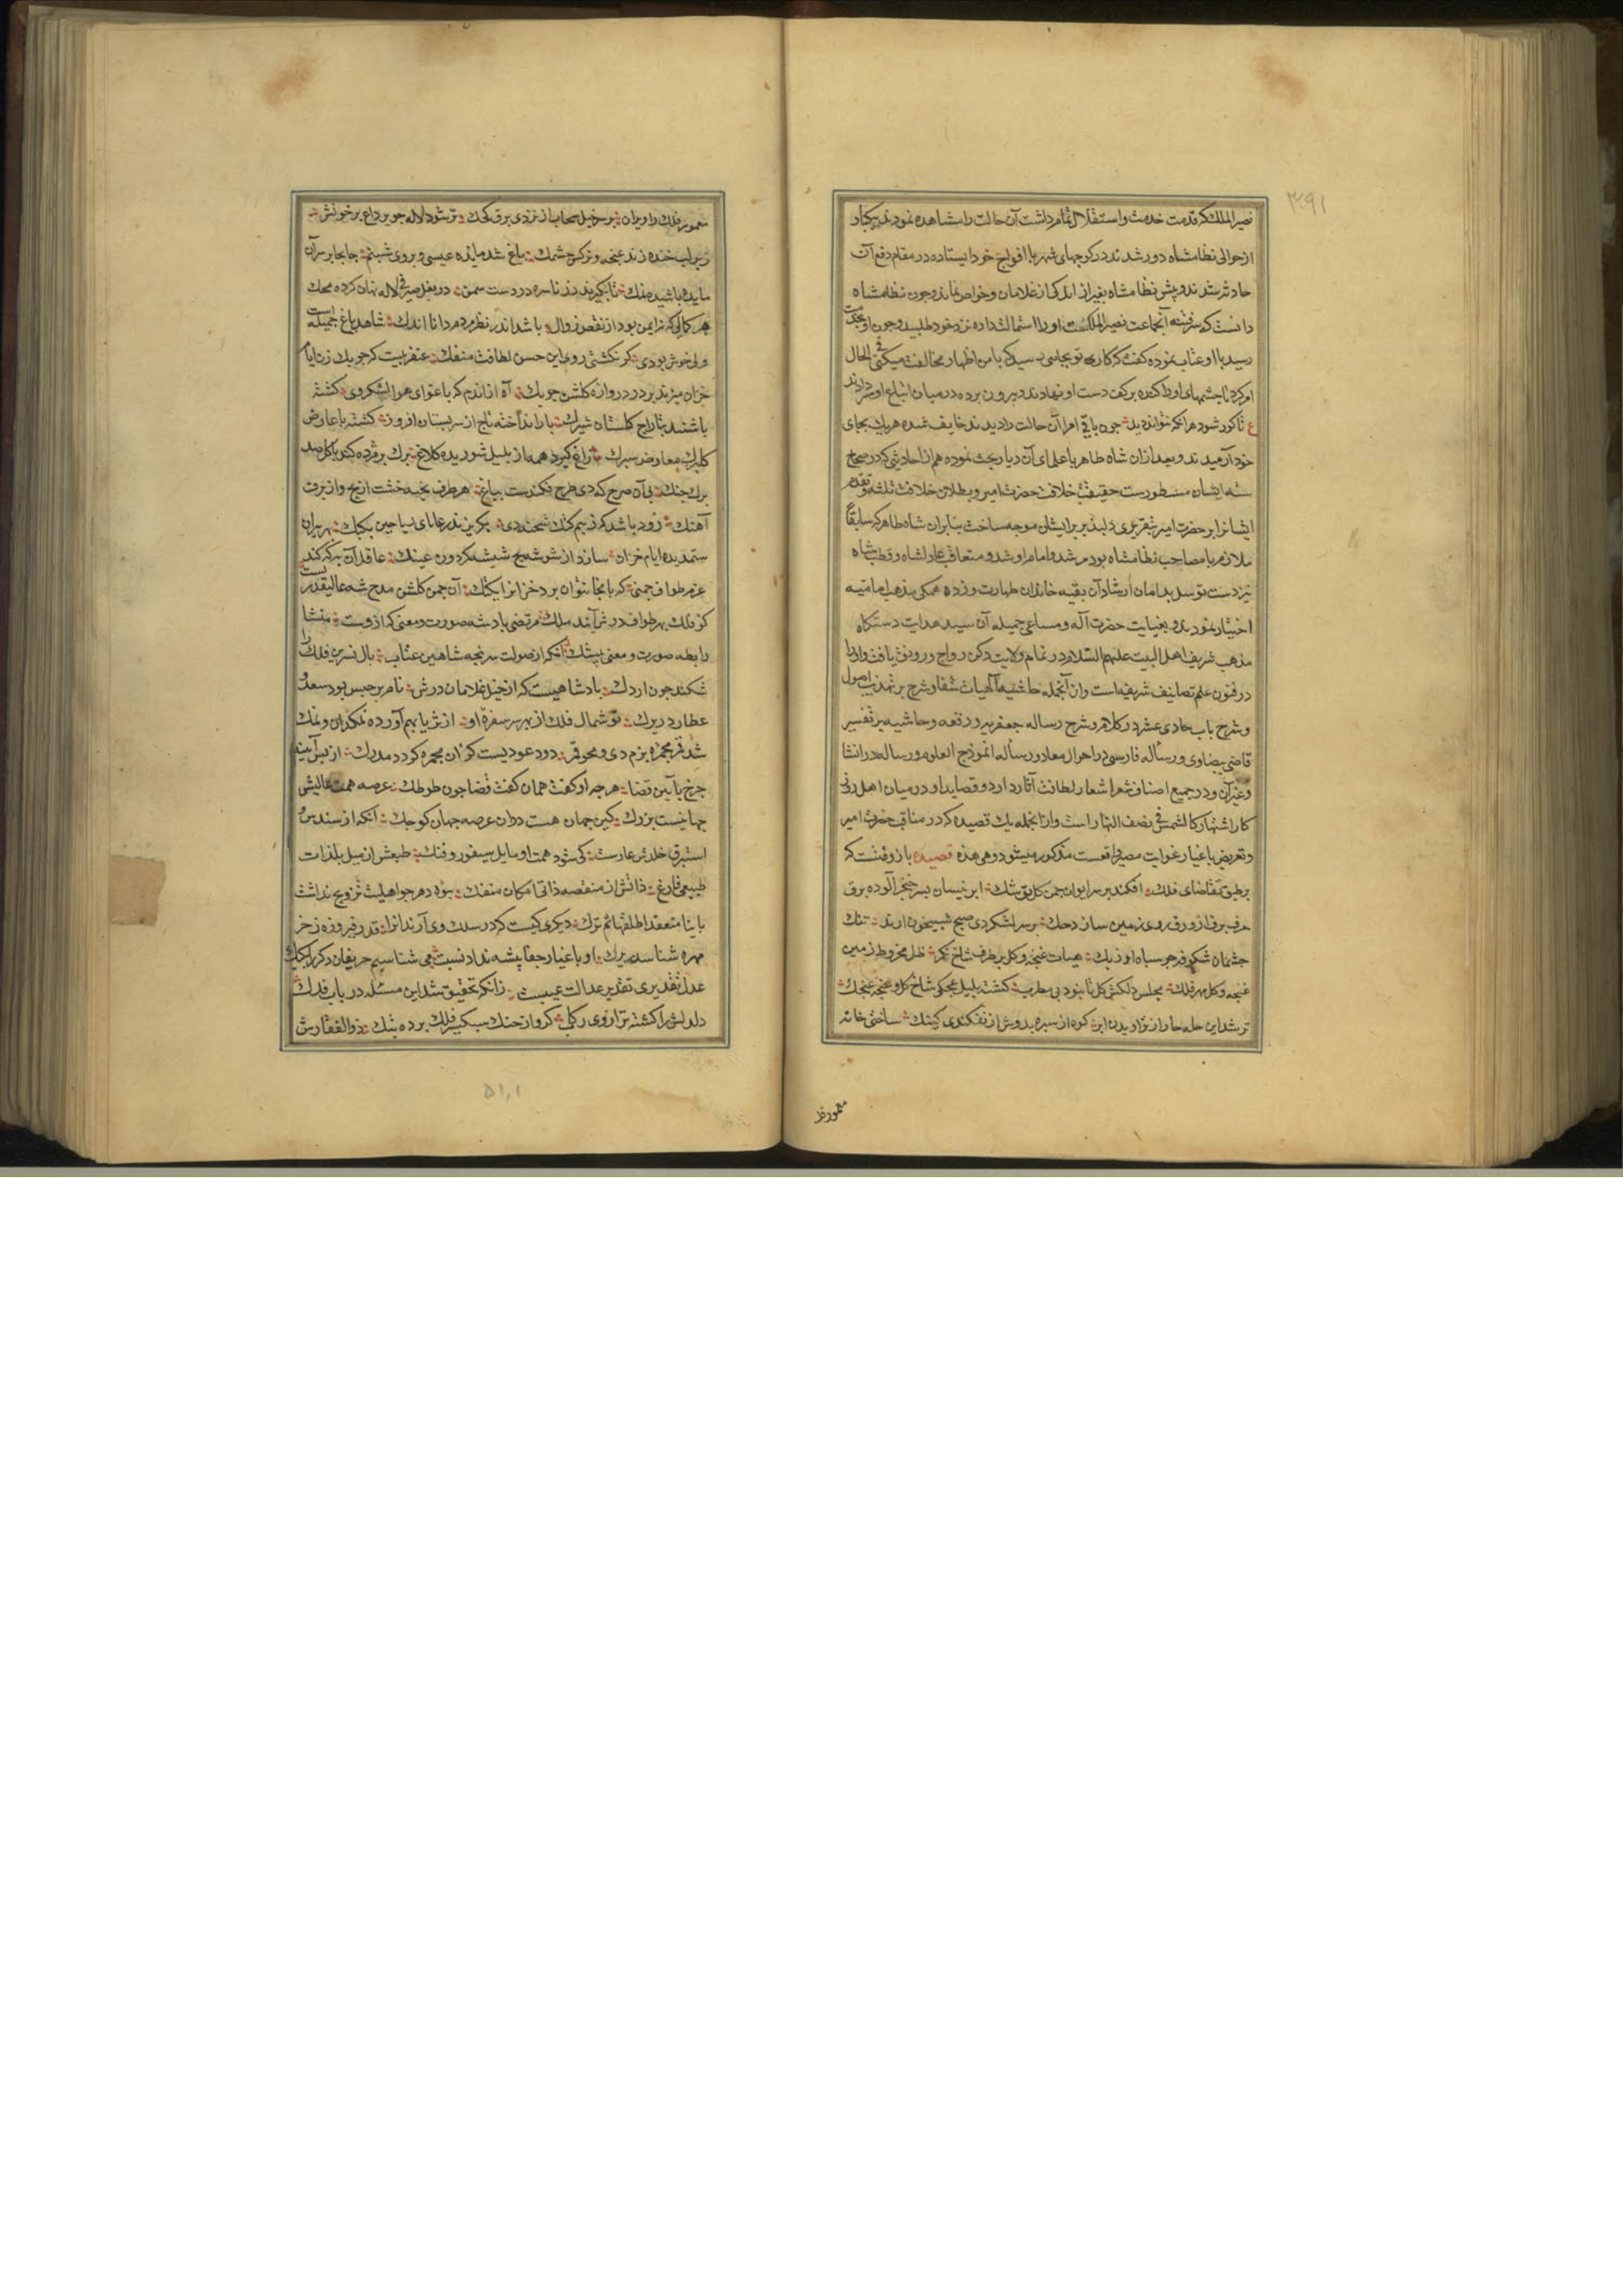 نصیر الملک که قدمت خدمت و استقلال تمام داشت آن حالت را مشاهده نمودند بیکبار
از حوالی نظامشاه دور شدند در کوچهای شهر با افواج خود ایستاده در مقام دفع آن
حادثه شدند و پیش نظامشاه بغیر از اندکی از غلامان و خواص نماند و چون نظامشاه
دانست که سر فتنه آنجماعت نصیر الملکست او را استمالت داده نزد خود طلبید و چون او بخدمت
رسید با او عتاب نموده گفت که کار تو بجایی رسید که با من اظهار مخالفت میکنی فی الحال
امر کرد تا چشمهای او را کنده بر کف دست او نهادند و بیرون برده در میان اتباع او سر دادند
ع تا کور شود هر آنکه نتواند دید چون باقی امرا آن حالت را دیدند خایف شده هر یک بجای
خود آرمیدند و بعد از آن شاه طاهر با علمای آن دیار بحث نموده هم از احادیثی که در صحاح
سته ایشان مسطورست حقیقت خلافت حضرت امیر و بطلان خلافت ثلثه و تقدم
ایشانرا بر حضرت امیر بتقریری دلپذیر بر ایشان موجه ساخت بنابر آن شاه طاهر که سابقا
ملازم یا مصاحب نظامشاه بود مرشد و امام او شد و متعاقب عادلشاه و قطبشاه
نیز دست توسل بدامان ارشاد آن بقیه خاندان طهارت و زده همگی مذهب امامیه
اختیار نمودند و بعنایت حضرت آله و مساعی جمیله آن سید هدایت دستکاه
مذهب شریف اهل البیت علیهم السلام در تمام ولایت دکن رواج و رونق یافت و او را
در فنون علم تصانیف شریفه است و از آنجمله حاشیه الهیات شفا و شرح بر تهذیب اصول
و شرح باب حادی عشر در کلام و شرح رساله جعفریه در فقه و حاشیه بر تفسیر
قاضی بیضاوی و رساله فارسی در احوال معاد و رساله انموذج العلوم و رساله در انشا
و غیر آن و در جمیع اصناف شعر اشعار لطافت آثار دارد و قصاید او در میان اهل روزگار
کار اشتهار کالشمس فی نصف النهار است و از آنجمله یک قصیده که در مناقب حضرت امیر
و تعریض باغیار غوایت مصیر واقعست مذکور میشود و هی هذه قصیده باز وقتست که
بر طبق تقاضای فلک افکند بر سر ایوان چمن گل توشک ابر نیسان بسر خنجر آلوده برق
حرف برف از ورق روی زمین سازد حک بر سر لشکر دی صبح شبیخون آرند تنک
چشمان شکوفه چو سپاه اوزبک هیات غنچه و گل بر طرف شاخ نگر ظل مخروط زمین
غنچه و گل مهر فلک مجلس دلکش گل تا نبود بی مطرب گشته بلبل غچکی شاخ گل و غنچه غچک
تر شد این حله حار از تراویدن ابر کوه از سبزه بدوش ار نفکندی کپنک ساختی خانه
معموره فلک
معموره فلک را ویران بر سر خیل سحاب ار نزدی برق کجک تر شود لاله چو بر داغ بر خونش
زیر لب خنده زند غنچه و نرگس چشمک باغ شد مایده عیسی و بروی شبنم جابجا بر سر آن
مایده باشیده نمک تا نگیرند زر ناسره در دست سمن در بغل صیرفی لاله نهان کرده محک
هر کمالی که نه ایمن بود از نقص زوال باشد اندر نظر مردم دانا اندک شاهد باغ جمیله است
ولی خوش بودی گر نگشتی ز وی این حسن لطافت منفک عنقریبست که چوبک زن ایام
خزان میزند بر در دروازه گلشن چوبک آه از اندم که باغوای هوا لشکر وی گشته
باشند بتاراج گلستان شیرک باد انداخته تاج از سر بستان افروز گشته با عارض
گلبرگ معارض سبرک زاغ گیرد همه از بلبل شوریده کلاغ ترک بژمرده کند با گل صد
برگ جنک بی آن صرح که دی طرح فکندست بباغ هر طرف پخته خشت از یخ و از برف
آهک زود باشد که ز بیم کتک شحنه دی بگریزند رعنای ریاحین بکتک بهر پیران
ستمدیده ایام خزان سازد از شوشه یخ شیشه گر دون عینک عاقد آن به که کند
عزم طواف چمنی که بانجا نتوان برد خزانرا بکتک آن چمن گلشن مدح شه عالیقدریست
کز فلک بهر طواف درش آیند ملک مرتضی پادشه صورت و معنی که از وست منشا
رابطه صورت و معنی بیشک آنکه از صولت سر پنجه شاهین عتاب بال نسرین فلک را
شکند چون اردک پادشاهیست که از خیل غلامان درش نام برجیس بود سعد و
عطارد زیرک توشمال فلک از بهر سر سفره او از ثریا بهم آورده نمکدان و نمک
شد قمر مجمره بزم وی و محو قمر دود عودیست کز ان مجمره گردد مدرک از پس آینه
چرخ بآیین قضا هر چه او گفت همان گفت قضا چون طوطک عرصه همت عالیش
جهانیست بزرگ کین جهان هست در ان عرصه جهان کوچک آنکه از سندس و
استبرق خلدش عارست کی شود همت او مایل سیفور و فنک طبعش از میل بلذات
طبیعی فارغ ذاتش از منقصه ذاتی امکان منفک بیوه دهر چو اهلیت تزویج نداشت
بابنا منعقدا طلقها ثم ترک دیگری کیست که در سلک وی آرند او را قدر فیروزه ز خر
مهره شناسد زیرک او باغیار جفا پیشه ندارد نسبت می شناسیم حریفان دگر را یکیک
عدل تقدیری تقدیر عدالت عبث است زانکه تحقیق شد این مسئله در باب فدک
دلدلش را گشته ترازوی رکاب گرو از خنک سبک سیر فلک برده بتک ذوالفقارش